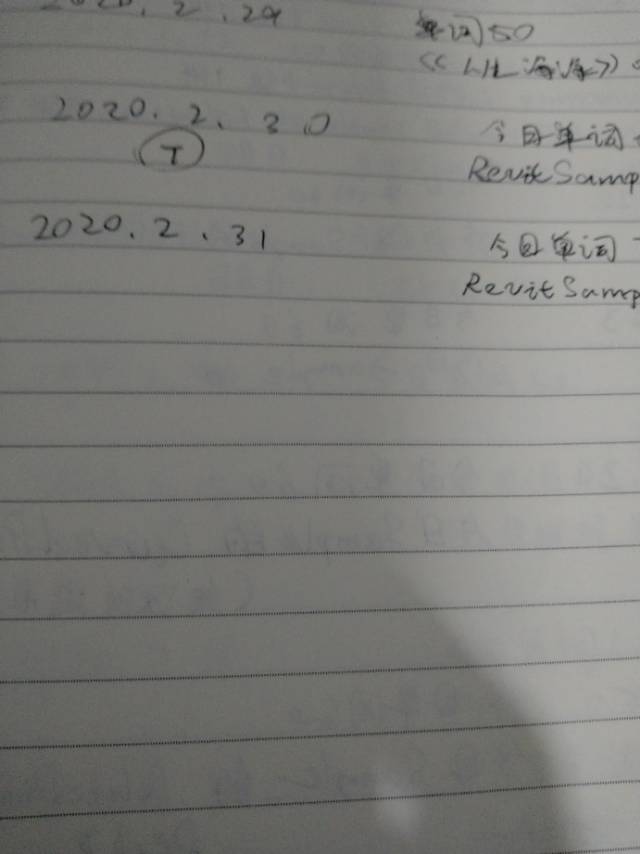 2020.2.29 单词50
2020.2.30 今日单词
T RevitSamp
2020.2.31 今日单词
RevitSamp